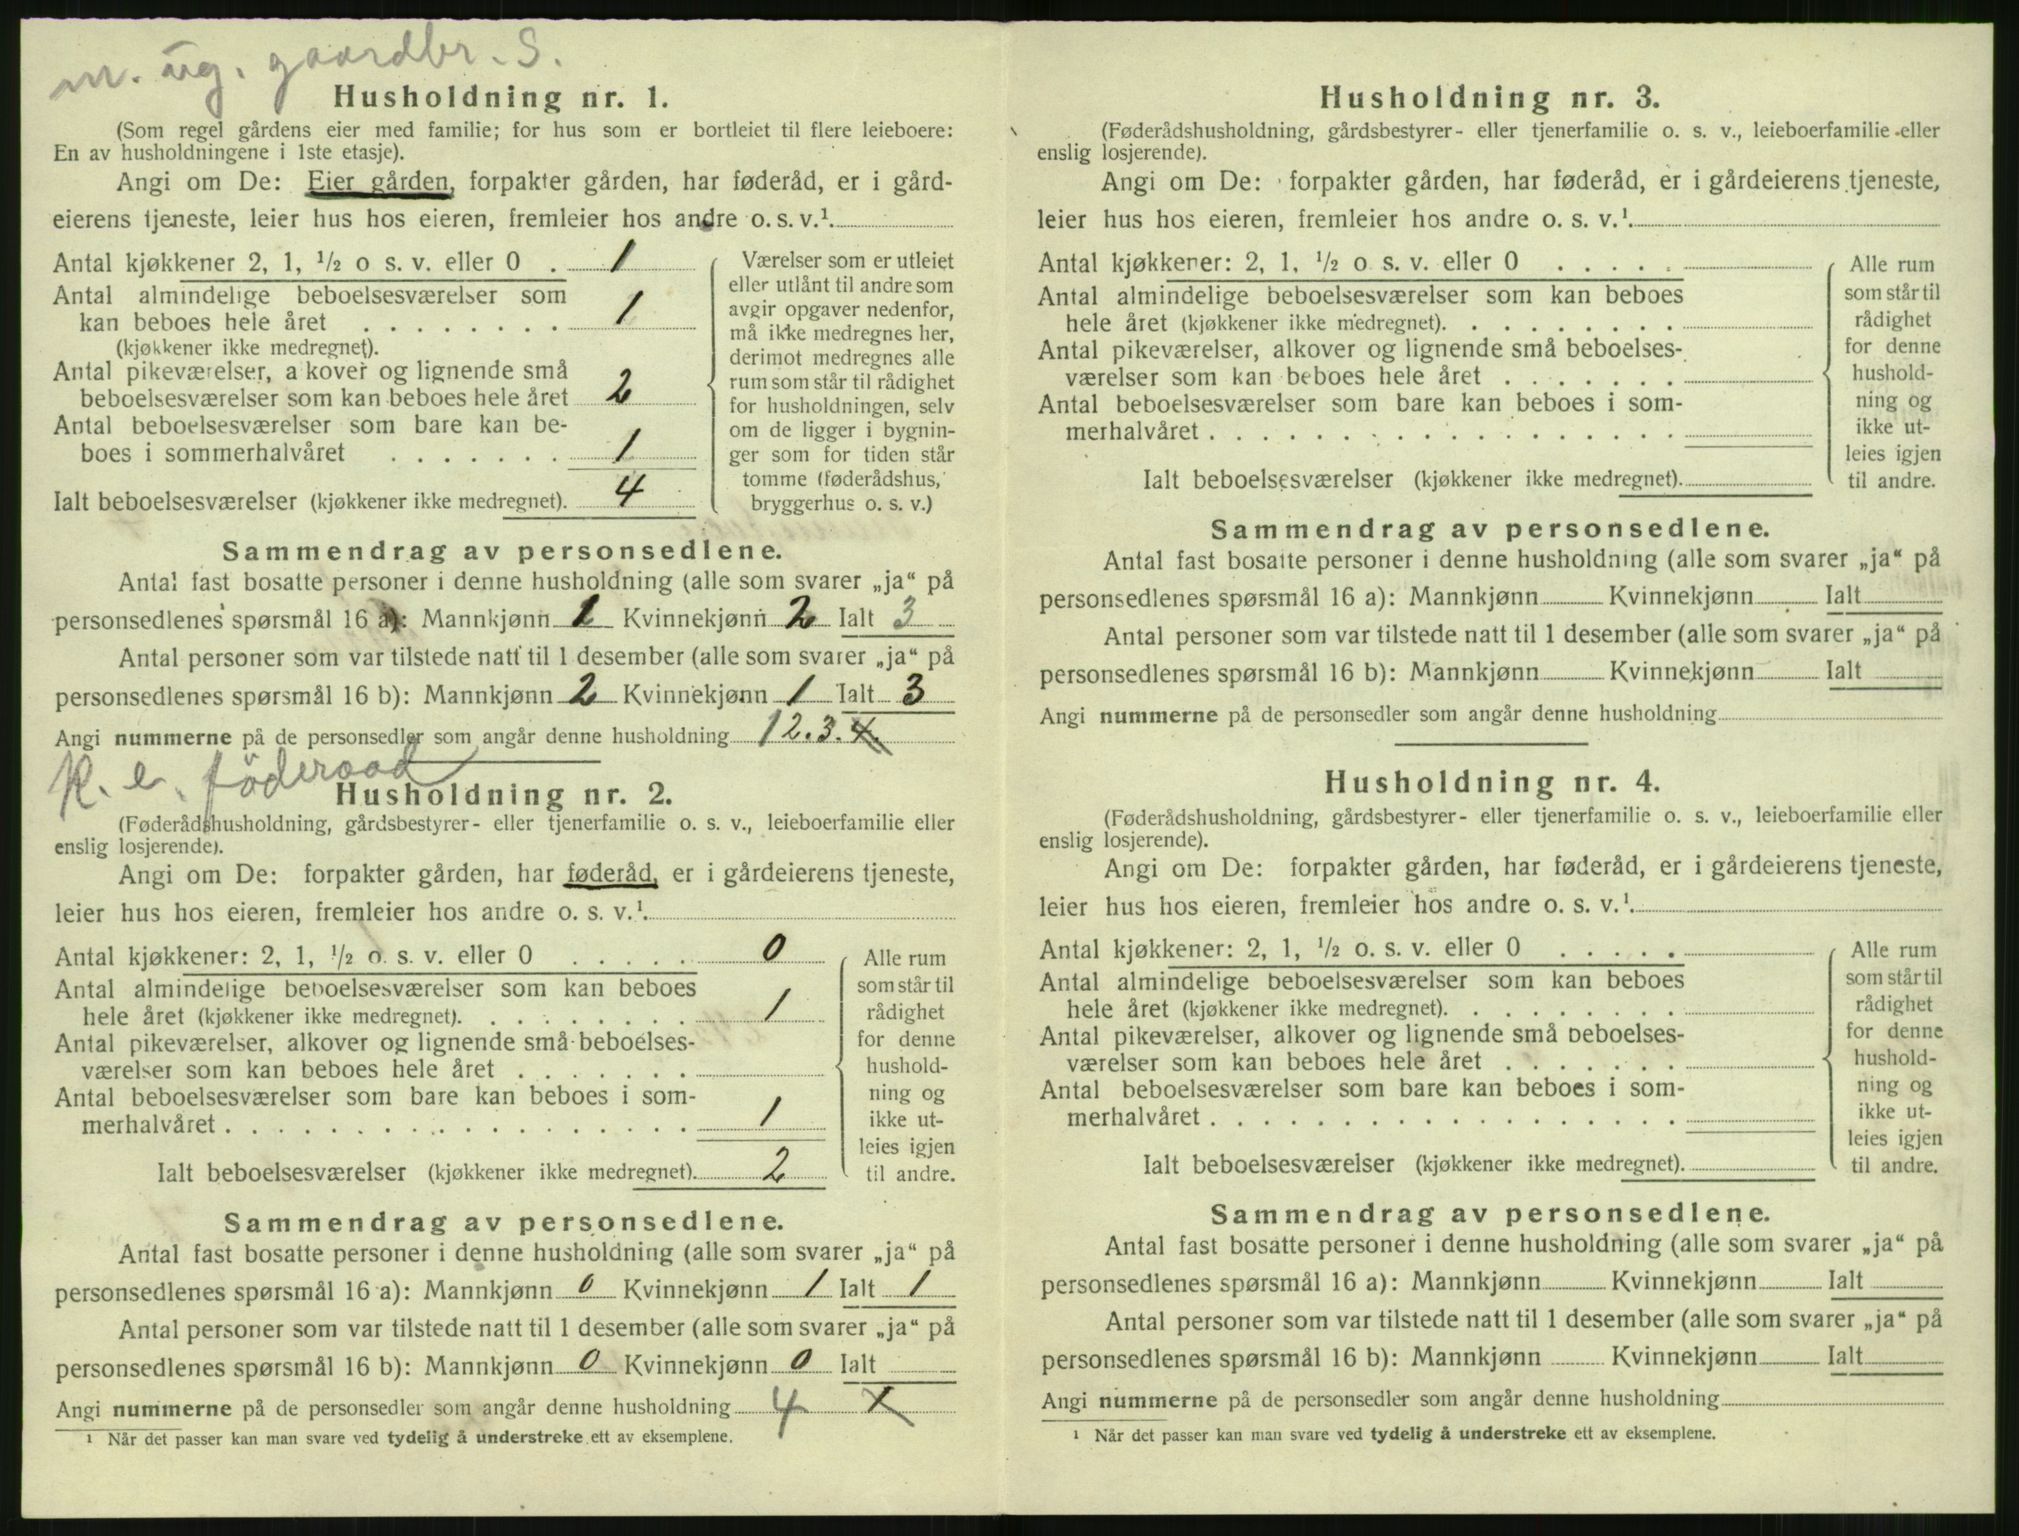 m. ug. gaardbr. S.
Husholdning nr. 1.
(Som regel gårdens eier med familie; for hus som er bortleiet til flere leieboere:
En av husholdningene i 1ste etasje).
Angi om De: Eier gården, forpakter gården, har føderåd, er i gård-
eierens tjeneste, leier hus hos eieren, fremleier hos andre o. s. v.¹.
Antal kjøkkener 2, 1, ½ o s. v. eller 0 . 1
Antal almindelige beboelsesværelser som
kan beboes hele året . . . . . . . . 1
(kjøkkener ikke medregnet).
Antal pikeværelser, a kover og lignende små
beboelsesværelser som kan beboes hele året 2
Antal beboelsesværelser som bare kan be-
boes i sommerhalvåret . . . . . . . 1
Ialt beboelsesværelser (kjøkkener ikke medregnet). 4
Værelser som er utleiet
eller utlånt til andre som
avgir opgaver nedenfor,
må ikke medregnes her,
derimot medregnes alle
rum som står til rådighet
for husholdningen, selv
om de ligger i bygnin-
ger som for tiden står
tomme (føderådshus,
bryggerhus o. s. v.)
Sammendrag av personsedlene.
Antal fast bosatte personer i denne husholdning (alle som svarer „ja“ på
personsedlenes spørsmål 16 a): Mannkjønn 1 Kvinnekjønn 2 Ialt 3
Antal personer som var tilstede natt til 1 desember (alle som svarer „ja“ på
personsedlenes spørsmål 16 b): Mannkjønn 2 Kvinnekjønn 1 Ialt 3
Angi nummerne på de personsedler som angår denne husholdning 12.3.4.
K. e. föderaad
Husholdning nr. 2.
(Føderådshusholdning, gårdsbestyrer- eller tjenerfamilie o. s. v., leieboerfamilie eller
enslig losjerende).
Angi om De: forpakter gården, har føderåd, er i gårdeierens tjeneste,
leier hus hos eieren, fremleier hos andre o. s. v.¹.
Antal kjøkkener: 2, 1, ½ o. s. v. eller 0 . . . . . 0
Antal almindelige beboelsesværelser som kan beboes
hele året (kjøkkener ikke medregnet). . . . . . . . . 1
Antal pikeværelser, alkover og lignende små beboelses-
værelser som kan beboes hele året . . . . . . .
Antal beboelsesværelser som bare kan beboes i som-
merhalvåret . . . . . . . . . . . . . . . . . . 1
Ialt beboelsesværelser (kjøkkener ikke medregnet). 2
Alle rum
som står til
rådighet
for denne
hushold-
ning og
ikke ut-
leies igjen
til andre.
Sammendrag av personsedlene.
Antal fast bosatte personer i denne husholdning (alle som svarer „ja“ på
personsedlenes spørsmål 16 a): Mannkjønn 0 Kvinnekjønn 1 Ialt 1
Antal personer som var tilstede natt til 1 desember (alle som svarer „ja“ på
personsedlenes spørsmål 16 b): Mannkjønn 0 Kvinnekjønn 0 Ialt
Angi nummerne på de personsedler som angår denne husholdning 4
¹ Når det passer kan man svare ved tydelig å understreke ett av eksemplene.
Husholdning nr. 3.
(Føderådshusholdning, gårdsbestyrer- eller tjenerfamilie o. s. v., leieboerfamilie eller
enslig losjerende).
Angi om De: forpakter gården, har føderåd, er i gårdeierens tjeneste,
leier hus hos eieren, fremleier hos andre o. s. v.¹.
Antal kjøkkener: 2, 1, ½ o s. v. eller 0 . . . . .
Antal almindelige beboelsesværelser som kan beboes
hele året (kjøkkener ikke medregnet). . . . . . . . .
Antal pikeværelser, alkover og lignende små beboelses-
værelser som kan beboes hele året . . . . . . .
Antal beboelsesværelser som bare kan beboes i som-
merhalvåret . . . . . . . . . . . . . . . . . .
Ialt beboelsesværelser (kjøkkener ikke medregnet).
Alle rum
som står til
rådighet
for denne
hushold-
ning og
ikke ut-
leies igjen
til andre.
Sammendrag av personsedlene.
Antal fast bosatte personer i denne husholdning (alle som svarer „ja“ på
personsedlenes spørsmål 16 a): Mannkjønn Kvinnekjønn Ialt
Antal personer som var tilstede natt til 1 desember (alle som svarer „ja“ på
personsedlenes spørsmål 16 b): Mannkjønn Kvinnekjønn Ialt
Angi nummerne på de personsedler som angår denne husholdning
Husholdning nr. 4.
(Føderådshusholdning, gårdsbestyrer- eller tjenerfamilie o. s. v., leieboerfamilie eller
enslig losjerende).
Angi om De: forpakter gården, har føderåd, er i gårdeierens tjeneste,
leier hus hos eieren, fremleier hos andre o. s. v.¹.
Antal kjøkkener: 2, 1, ½ o. s. v. eller 0 . . . . .
Antal almindelige beboelsesværelser som kan beboes
hele året (kjøkkener ikke medregnet). . . . . . . . .
Antal pikeværelser, alkover og lignende små beboelses-
værelser som kan beboes hele året . . . . . . .
Antal beboelsesværelser som bare kan beboes i som-
merhalvåret . . . . . . . . . . . . . . . . . .
Ialt beboelsesværelser (kjøkkener ikke medregnet).
Alle rum
som står til
rådighet
for denne
hushold-
ning og
ikke ut-
leies igjen
til andre.
Sammendrag av personsedlene.
Antal fast bosatte personer i denne husholdning (alle som svarer „ja“ på
personsedlenes spørsmål 16 a): Mannkjønn Kvinnekjønn Ialt
Antal personer som var tilstede natt til 1 desember (alle som svarer „ja“ på
personsedlenes spørsmål 16 b): Mannkjønn Kvinnekjønn Ialt
Angi nummerne på de personsedler som angår denne husholdning
¹ Når det passer kan man svare ved tydelig å understreke ett av eksemplene.